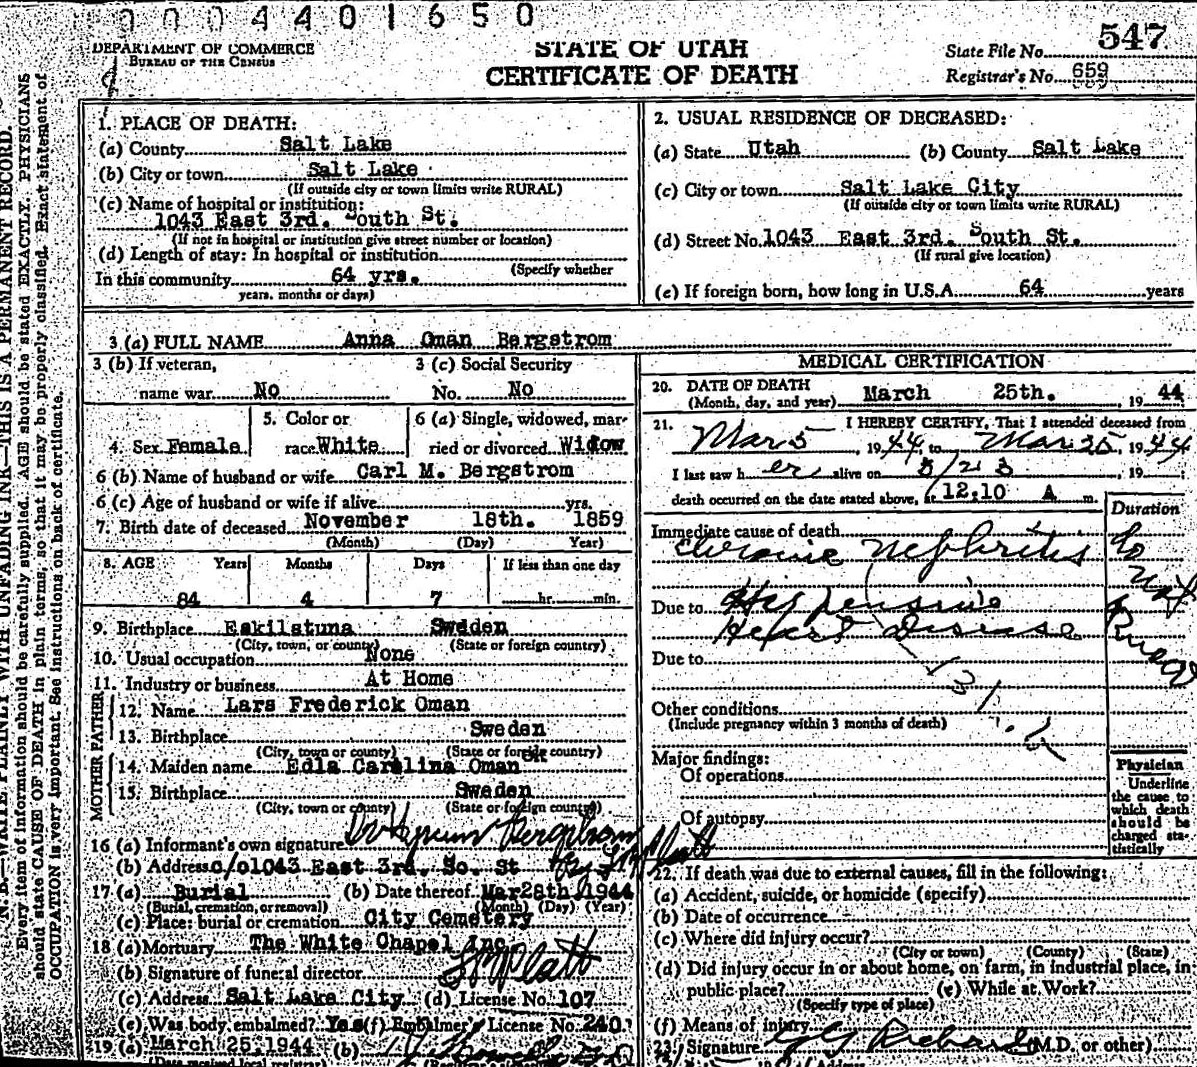 0004401650
DEPARTMENT OF COMMERCE
BUREAU OF THE CENSUS
STATE OF UTAH
CERTIFICATE OF DEATH
State File No. 547
Registrar's No. 659
N. B.—WRITE PLAINLY WITH UNFADING INK—THIS IS A PERMANENT RECORD.
Every item of information should be carefully supplied. AGE should be stated EXACTLY. PHYSICIANS
should state CAUSE OF DEATH in plain terms, so that it may be properly classified. Exact statement of
OCCUPATION is very important. See instructions on back of certificate.
1. PLACE OF DEATH:
(a) County Salt Lake
(b) City or town Salt Lake
(If outside city or town limits write RURAL)
(c) Name of hospital or institution:
1043 East 3rd. South St.
(If not in hospital or institution give street number or location)
(d) Length of stay: In hospital or institution
(Specify whether
In this community 64 yrs.
years, months or days)
2. USUAL RESIDENCE OF DECEASED:
(a) State Utah (b) County Salt Lake
(c) City or town Salt Lake City
(If outside city or town limits write RURAL)
(d) Street No. 1043 East 3rd. South St.
(If rural give location)
(e) If foreign born, how long in U.S.A. 64 years
3 (a) FULL NAME Anna Oman Bergstrom
3 (b) If veteran, 3 (c) Social Security
name war No No. No
4. Sex Female 5. Color or race White 6 (a) Single, widowed, married or divorced Widow
6 (b) Name of husband or wife Carl M. Bergstrom
6 (c) Age of husband or wife if alive yrs.
7. Birth date of deceased November 18th. 1859
(Month) (Day) Year)
8. AGE Years Months Days If less than one day
84 4 7 hr. min.
9. Birthplace Eskilstuna Sweden
(City, town, or county) (State or foreign country)
10. Usual occupation None
11. Industry or business At Home
FATHER
12. Name Lars Frederick Oman
13. Birthplace Sweden
(City, town or county) (State or foreign country)
MOTHER
14. Maiden name Edla Carolina Oman
15. Birthplace Sweden
(City, town or county) (State or foreign country)
16 (a) Informant's own signature Bergstrom
(b) Address c/o 1043 East 3rd. So. St By L M Platt
17 (a) Burial (b) Date thereof Mar 28th 1944
(Burial, cremation, or removal) (Month) (Day) (Year)
(c) Place: burial or cremation City Cemetery
18 (a) Mortuary The White Chapel Inc
(b) Signature of funeral director L M Platt
(c) Address Salt Lake City (d) License No. 107
(e) Was body embalmed? Yes (f) Embalmer's License No. 240
19 (a) March 25, 1944 (b)
(Date received local registrar)
MEDICAL CERTIFICATION
20. DATE OF DEATH
(Month, day, and year) March 25th. , 19 44
21. I HEREBY CERTIFY, That I attended deceased from
Mar 5 , 1944, to Mar 25, 1944
I last saw h er alive on 3/23 , 19
death occurred on the date stated above, at 12:10 A m.
Duration
Immediate cause of death
Chronic Nephritis
Due to Hypertensive
Heart Disease
Due to
131
Other conditions
(Include pregnancy within 3 months of death)
Major findings:
Of operations
Of autopsy
Physician
Underline
the cause to
which death
should be
charged sta-
tistically
22. If death was due to external causes, fill in the following:
(a) Accident, suicide, or homicide (specify)
(b) Date of occurrence
(c) Where did injury occur?
(City or town) (County) (State)
(d) Did injury occur in or about home, on farm, in industrial place, in
public place? (e) While at Work?
(Specify type of place)
(f) Means of injury
23. Signature G G Richards (M.D. or other)
Address